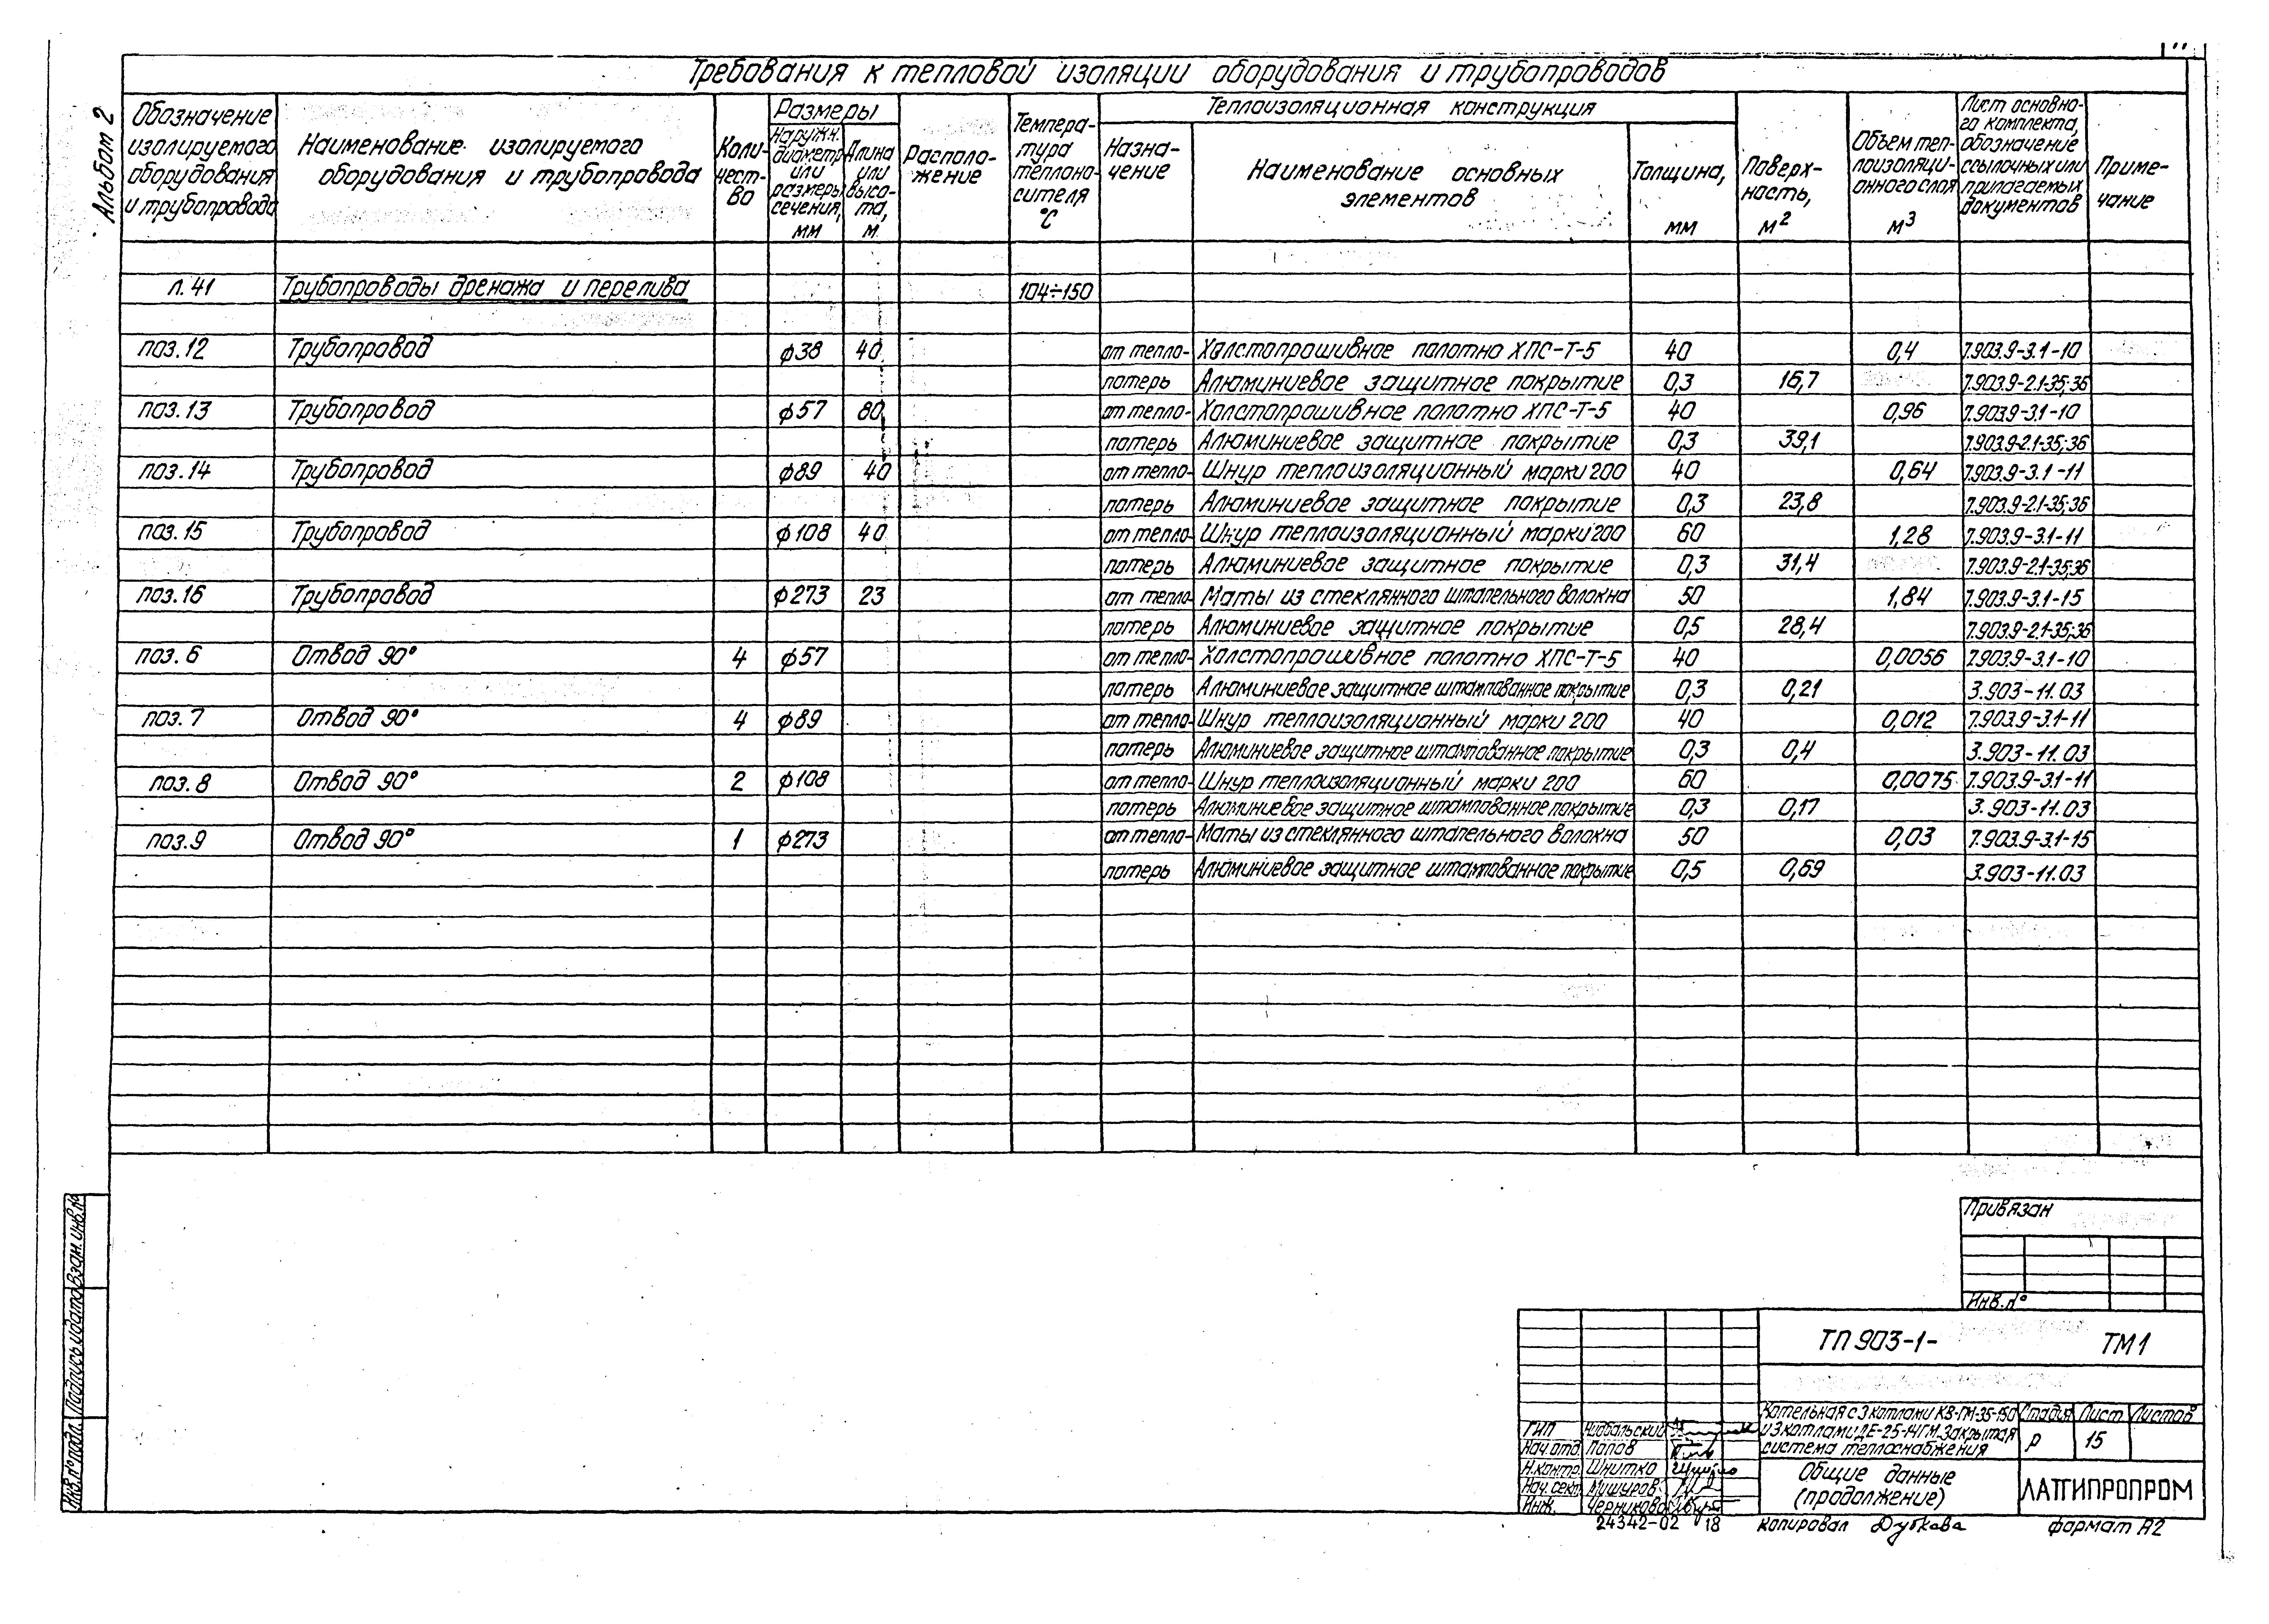 Альбом 2
Требования к тепловой изоляции оборудования и трубопроводов
Обозначение изолируемого оборудования и трубопровода
Наименование изолируемого оборудования и трубопровода
Коли-чест-во
Размеры
Наружн. диаметр или размеры сечения, мм
Длина или высо-та, м
Располо-жение
Темпера-тура теплоно-сителя °C
Теплоизоляционная конструкция
Назна-чение
Наименование основных элементов
Толщина, мм
Поверх-ность, м2
Объем теп-лоизоляци-онного слоя м3
Лист основно-го комплекта, обозначение ссылочных или прилагаемых документов
Приме-чание
л.41 Трубопроводы дренажа и перелива 104÷150
поз.12 Трубопровод ф38 40 от тепло- Холстопрошивное полотно ХПС-Т-5 40 0,4 7.903.9-3.1-10
потерь Алюминиевое защитное покрытие 0,3 16,7 7.903.9-2.1-35;36
поз.13 Трубопровод ф57 80 от тепло- Холстопрошивное полотно ХПС-Т-5 40 0,96 7.903.9-3.1-10
потерь Алюминиевое защитное покрытие 0,3 39,1 7.903.9-2.1-35;36
поз.14 Трубопровод ф89 40 от тепло- Шнур теплоизоляционный марки 200 40 0,64 7.903.9-3.1-11
потерь Алюминиевое защитное покрытие 0,3 23,8 7.903.9-2.1-35;36
поз.15 Трубопровод ф108 40 от тепло- Шнур теплоизоляционный марки 200 60 1,28 7.903.9-3.1-11
потерь Алюминиевое защитное покрытие 0,3 31,4 7.903.9-2.1-35;36
поз.16 Трубопровод ф273 23 от тепло Маты из стеклянного штапельного волокна 50 1,84 7.903.9-3.1-15
потерь Алюминиевое защитное покрытие 0,5 28,4 7.903.9-2.1-35;36
поз.6 Отвод 90° 4 ф57 от тепло- Холстопрошивное полотно ХПС-Т-5 40 0,0056 7.903.9-3.1-10
потерь Алюминиевое защитное штампованное покрытие 0,3 0,21 3.903-11.03
поз.7 Отвод 90° 4 ф89 от тепло- Шнур теплоизоляционный марки 200 40 0,012 7.903.9-3.1-11
потерь Алюминиевое защитное штампованное покрытие 0,3 0,4 3.903-11.03
поз.8 Отвод 90° 2 ф108 от тепло- Шнур теплоизоляционный марки 200 60 0,0075 7.903.9-3.1-11
потерь Алюминиевое защитное штампованное покрытие 0,3 0,17 3.903-11.03
поз.9 Отвод 90° 1 ф273 от тепло- Маты из стеклянного штапельного волокна 50 0,03 7.903.9-3.1-15
потерь Алюминиевое защитное штампованное покрытие 0,5 0,69 3.903-11.03
Привязан
Инв.№
ТП 903-1- ТМ1
Котельная с 3 котлами КВ-ГМ-35-150
и 3 котлами ДЕ-25-14ГМ. Закрытая
система теплоснабжения
Стадия Лист Листов
Р 15
Общие данные
(продолжение)
ЛАТГИПРОПРОМ
ГИП
Нач.отд. Попов
Н.контр. Шнитко
Нач.сект. Мишуров
Инж. Черникова
24342-02 18
копировал Дубкова
формат А2
Инв.№ подл. Подпись и дата Взам.инв.№